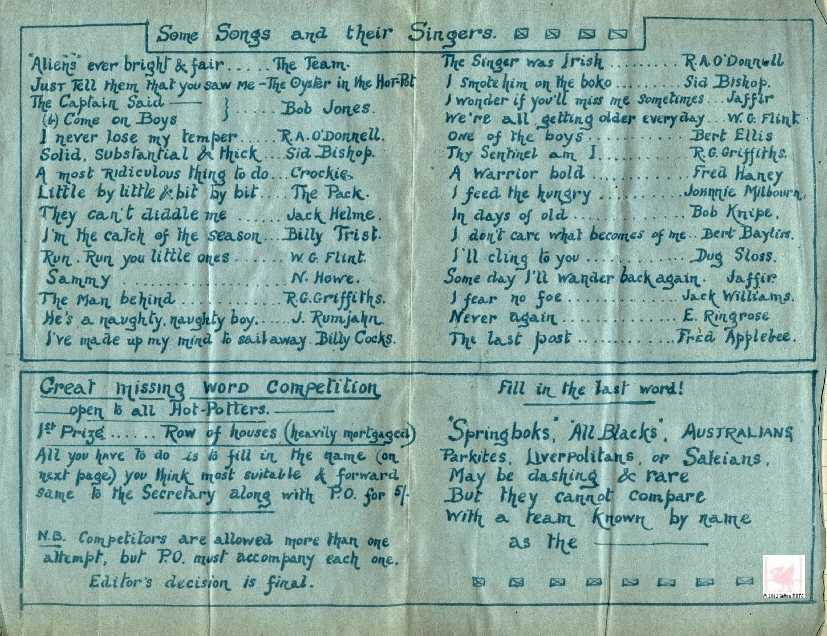 Some Songs and their Singers.
"Aliens" ever bright & fair ..... The Team.
Just tell them that you saw me - The Oyster in the Hot-Pot
The Captain Said —
(b) Come on Boys } ...... Bob Jones.
I never lose my temper ..... R.A.O'Donnell.
Solid, Substantial & thick ... Sid Bishop.
A most Ridiculous thing to do ... Crockie.
Little by little & bit by bit .... The Pack.
They can't diddle me ....... Jack Helme.
I'm the catch of the season ... Billy Trist.
Run. Run you little ones ...... W.G. Flint
Sammy .................. N. Howe.
The Man behind ............ R.G. Griffiths.
He's a naughty, naughty boy ...... J. Rumjahn.
I've made up my mind to sail away. Billy Cocks.
The Singer was Irish ......... R.A.O'Donnell
I smote him on the boko ....... Sid Bishop.
I wonder if you'll miss me sometimes .. Jaffir
We're all getting older every day ... W.G. Flint
One of the boys ............ Bert Ellis
Thy Sentinel am I ........... R.G. Griffiths.
A Warrior bold ............ Fred Haney
I feed the hungry .......... Johnnie Milbourn.
In days of old .............. Bob Knipe.
I don't care what becomes of me .. Bert Bayliss.
I'll cling to you ............ Dug Sloss.
Some day I'll wander back again. Jaffir.
I fear no foe .............. Jack Williams.
Never again .............. E. Ringrose
The last post ............. Fred Applebee.
Great missing word Competition
— open to all Hot-Potters. —
1st Prize ...... Row of houses (heavily mortgaged)
All you have to do is to fill in the name (on
next page) you think most suitable & forward
same to the Secretary along with P.O. for 5/-
N.B. Competitors are allowed more than one
attempt, but P.O. must accompany each one.
Editor's decision is final.
Fill in the last word!
"Springboks", "All Blacks", Australians,
Parkites, Liverpolitans, or Saleians,
May be dashing & rare
But they cannot compare
With a team known by name
as the ————